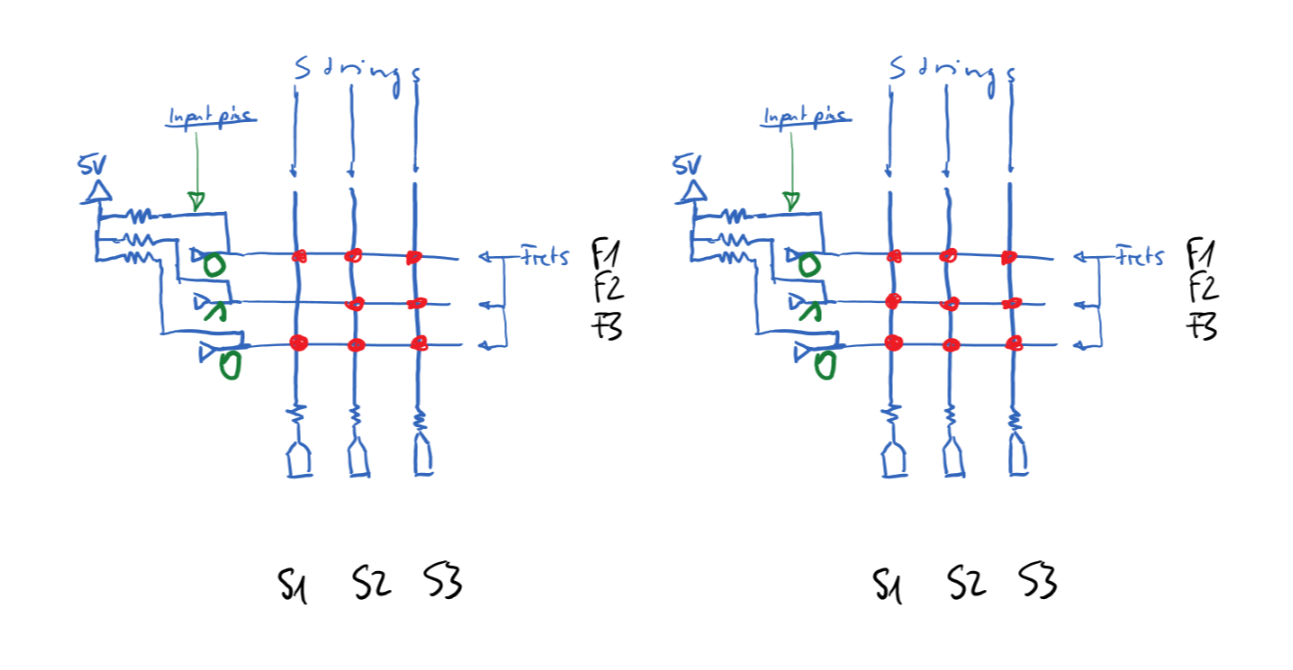 Strings
Input pins
5V
0
1
0
Frets
F1
F2
F3
S1 S2 S3
Strings
Input pins
5V
0
1
0
Frets
F1
F2
F3
S1 S2 S3